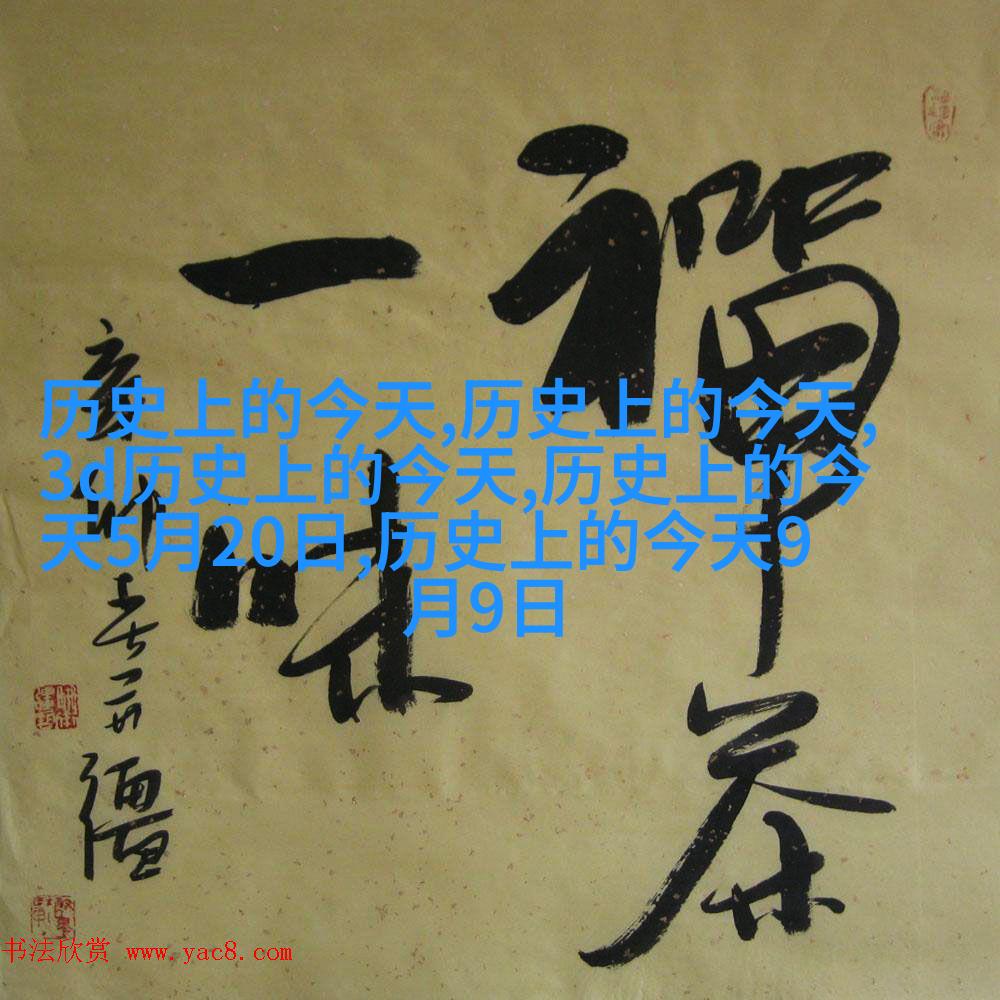 禅茶
一味
历史上的今天,历史上的今天,
3d历史上的今天,历史上的今
天5月20日,历史上的今天9
月9日
书法欣赏 www.yac8.com